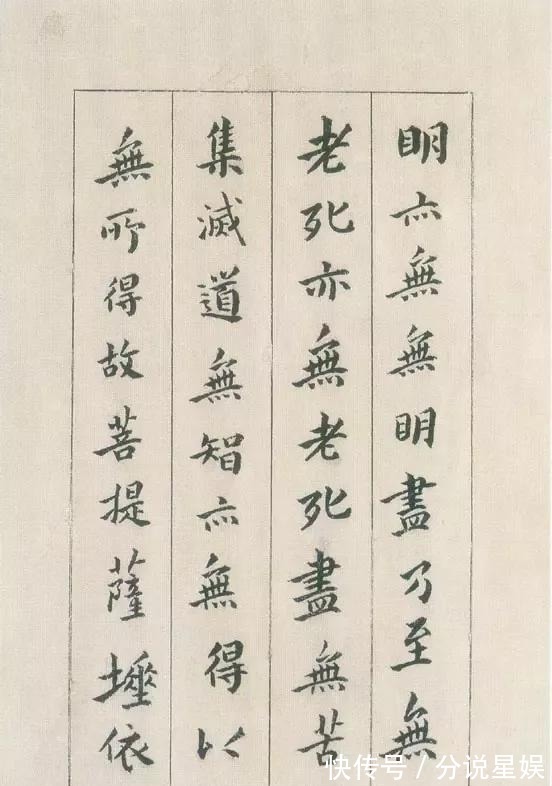 明亦無無明盡乃至無
老死亦無老死盡無苦
集滅道無智亦無得以
無所得故菩提薩埵依
快传号／分说星娱